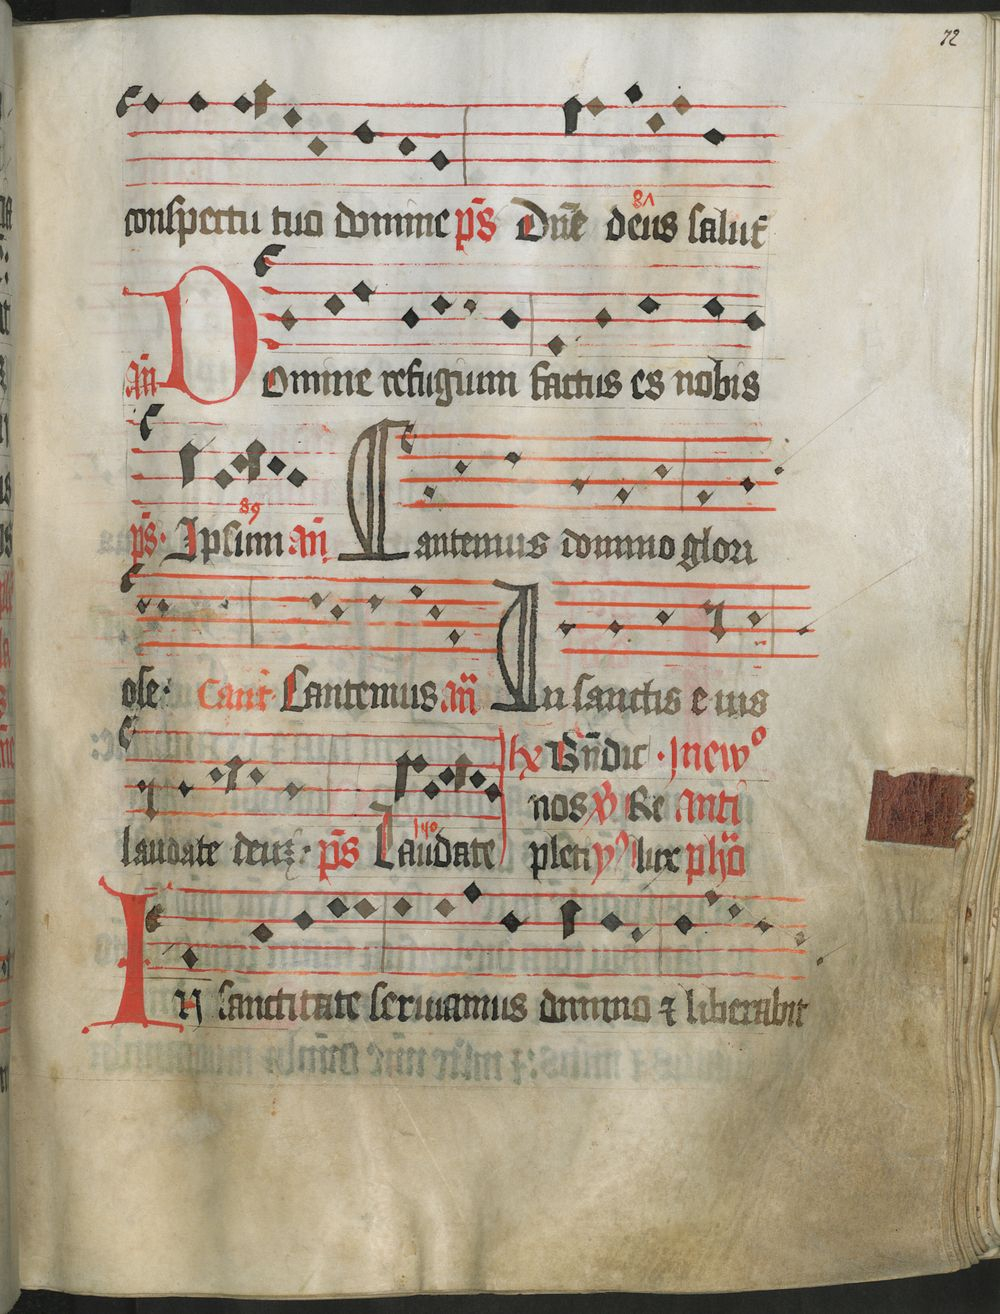 72
conspectu tuo domine p̄s Dn̄e deus salut̄
87
an̄ Domine refugium factus es nobis
p̄s· Ipsum an̄ Cantemus domino glori
89
ose· Cant̄ Cantemus an̄ In sanctis eius
hx Bn̄dic
laudate deuꝫ· p̄s Laudate
nos
pleti lux
In sanctitate seruiamus domino ⁊ liberabit